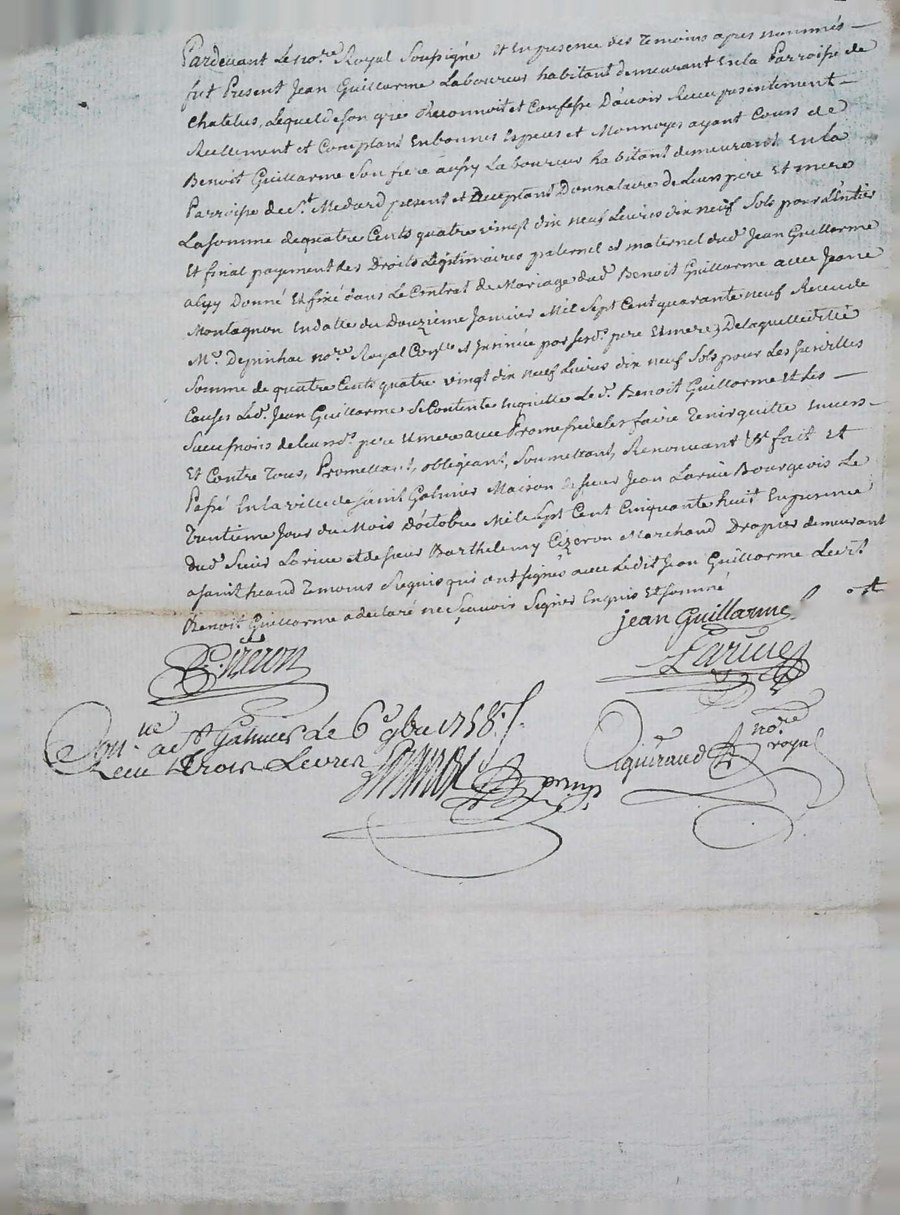 Pardevant Le no.re Royal Soussigné Et En presence des Temoins apres nommés
fut Present Jean Guillarme Laboureur habitant demeurant En la Parroisse de
Chatelus, Lequel de son gré a Reconnut et Confesse D'avoir Receu presentement
Reellement et Comptant En bonnes Especes et Monnoyes ayant Cours de
Benoit Guillarme Son frere aussy Laboureur habitant demeurant En la
Parroisse de St. Medard present et acceptant Donnataire de Leurs pere Et mere
La somme de quatre Cents quatre vingt dix neuf Livres dix neuf Sols pour L'entier
Et final payement des Droits Legitimaires paternel et maternel dud. Jean Guillarme
a luy Donné Et fixé dans Le Contrat de Mariage dud. Benoit Guillarme avec Jeane
Montagnon En datte du Douzieme Janvier Mil Sept Cent quarante neuf Receu de
Me. no.re Royal et par Lesd. pere Et mere De laquelle dite
Somme de quatre Cents quatre vingt dix neuf Livres dix neuf Sols pour Les
Causes Led. Jean Guillarme Se Contente Enquitte Le d. Benoit Guillarme Et Les
Successions de Leursd. pere Et mere avec Promesse de Les faire Tenir quitte Envers
Et Contre Tous, Promettant, obligeant, Soumettant, Renonçant &a fait et
Passé En la ville de Saint Galmier Maison de Sieur Jean Larive Bourgeois Le
Trentieme Jour du Mois D'octobre Mil Sept Cent Cinquante huit En presence
dud. Sieur Larive et de Sieur Barthelemy Cizeron Marchand Drapier demeurant
a Saint heand Temoins Requis qui ont signés avec Ledit Jean Guillarme Ledit
Benoit Guillarme a declaré ne Scavoir Signer Enquis Et Sommé
jean Guillarme
Cizeron
Larive
Con.lé a St Galmier Le 6e 9bre 1758.
Receu trois Livres
no.re royal